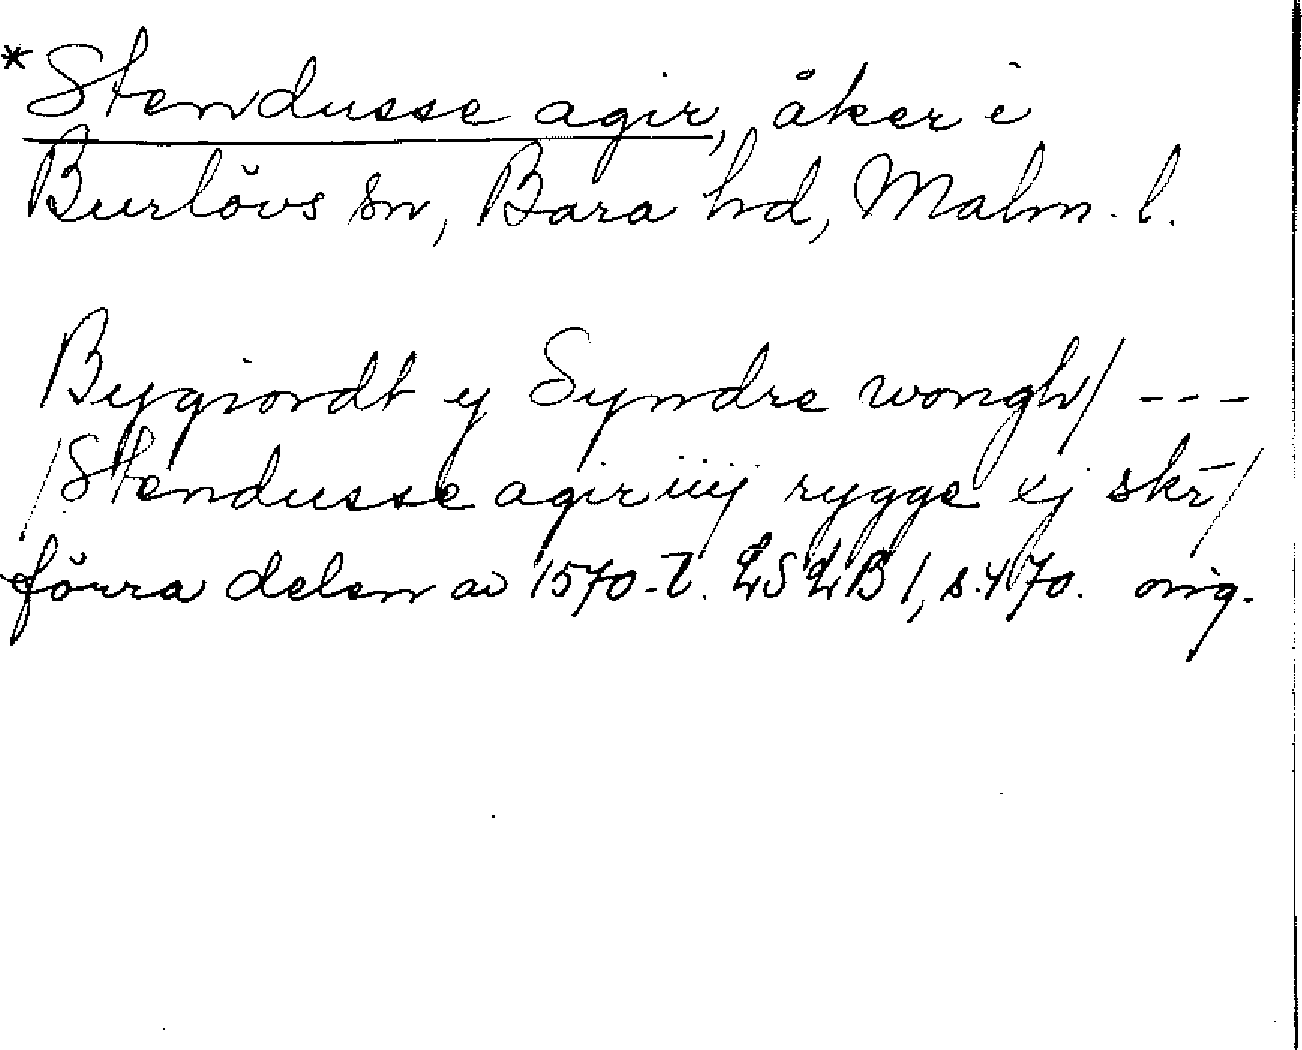 *Stendusse agir, åker i
Burlövs sn, Bara hd, Malm. l.
Bygiordt y Syndre wongh/ ---
/Stendusse agir iiij rygge ij skr̄/
förra delen av 1570-t. LSLB 1, s. 470. orig.